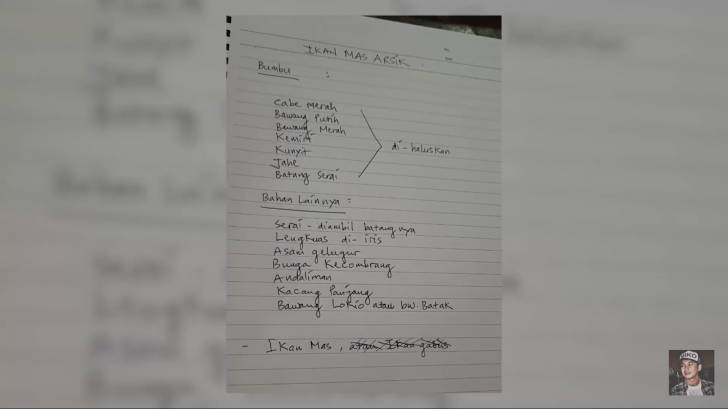 IKAN MAS ARSIK
Bumbu :
Cabe Merah
Bawang Putih
Bawang Merah
Kemiri
Kunyit
Jahe
Batang Serai
di-haluskan
Bahan Lainnya :
Serai - diambil batangnya
Lengkuas di-iris
Asam gelugur
Bunga Kecombrang
Andaliman
Kacang Panjang
Bawang Lokio atau bw. Batak
- Ikan Mas, atau Ikan gabus